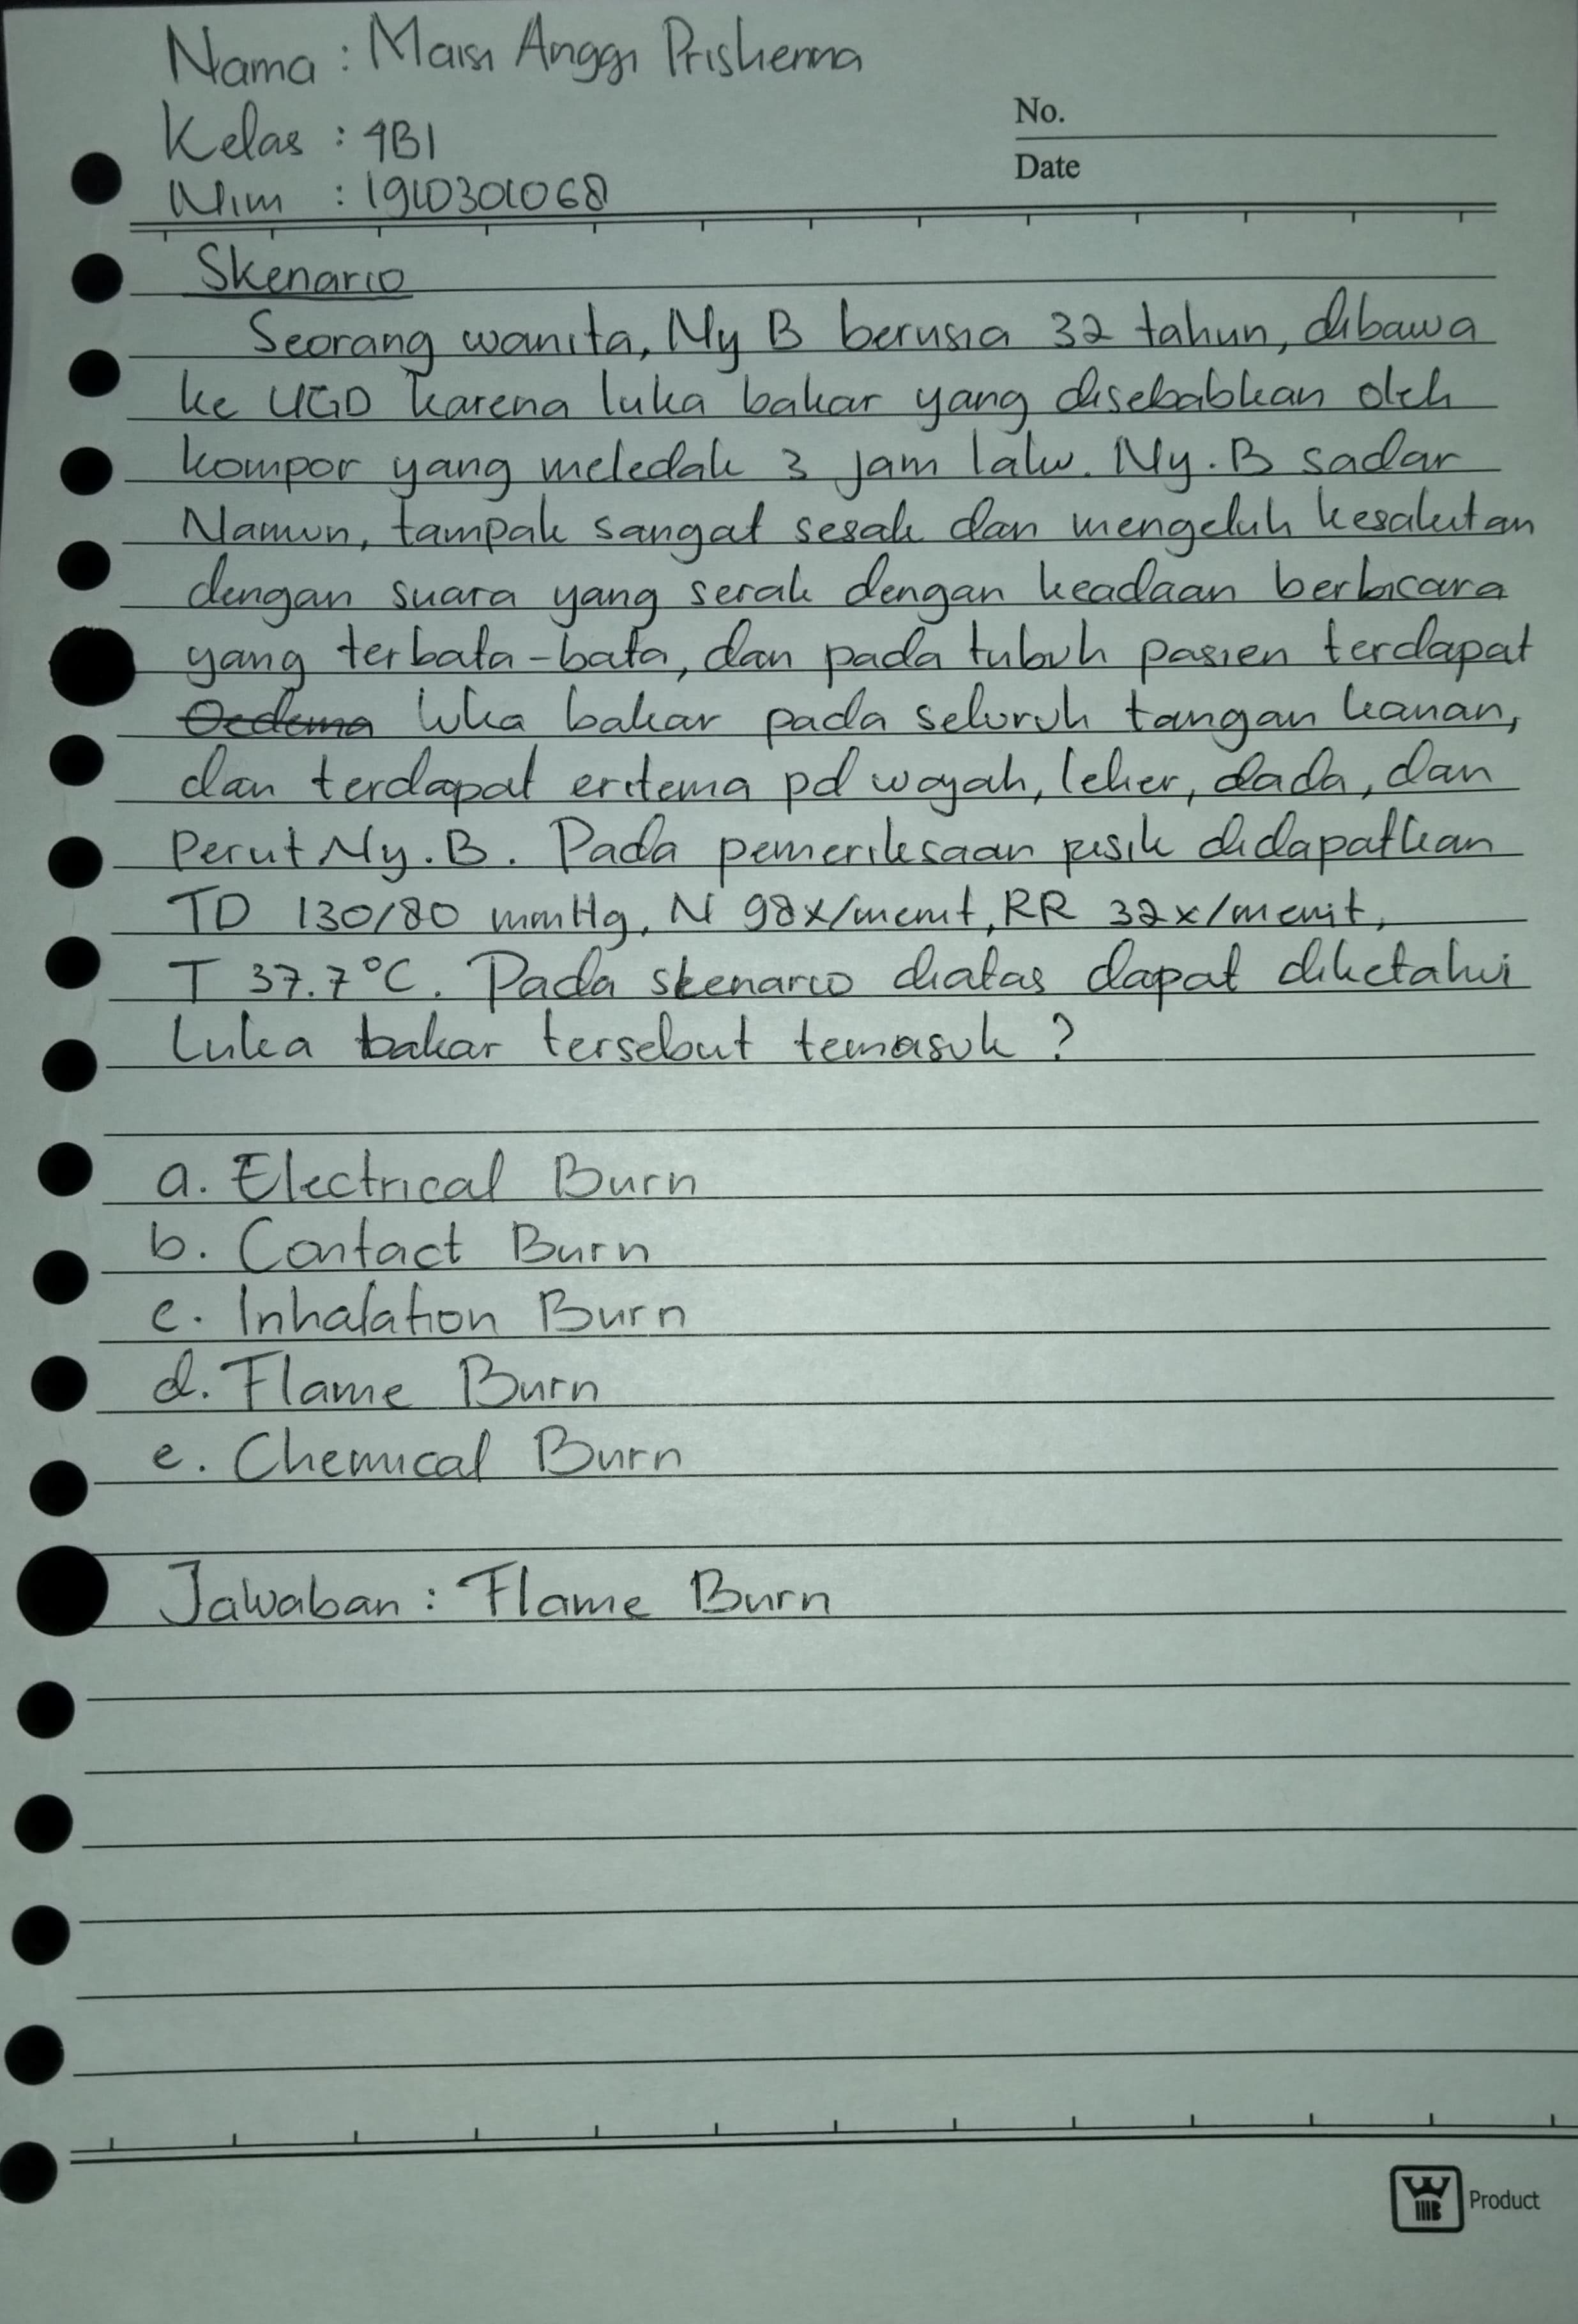 Nama : Maisi Anggi Prisherma
Kelas : 4B1
No.
Date
Nim : 1910301068
Skenario
Seorang wanita, Ny B berusia 32 tahun, dibawa
ke UGD karena luka bakar yang disebabkan oleh
kompor yang meledak 3 jam lalu. Ny. B sadar
Namun, tampak sangat sesak dan mengeluh kesakitan
dengan suara yang serak dengan keadaan berbicara
yang terbata-bata, dan pada tubuh pasien terdapat
Oedema luka bakar pada seluruh tangan kanan,
dan terdapat eritema pd wajah, leher, dada, dan
Perut Ny. B. Pada pemeriksaan fisik didapatkan
TD 130/80 mmHg, N 98x/menit, RR 32x/menit,
T 37.7°C. Pada skenario diatas dapat diketahui
Luka bakar tersebut temasuk ?
a. Electrical Burn
b. Contact Burn
c. Inhalation Burn
d. Flame Burn
e. Chemical Burn
Jawaban : Flame Burn
Product